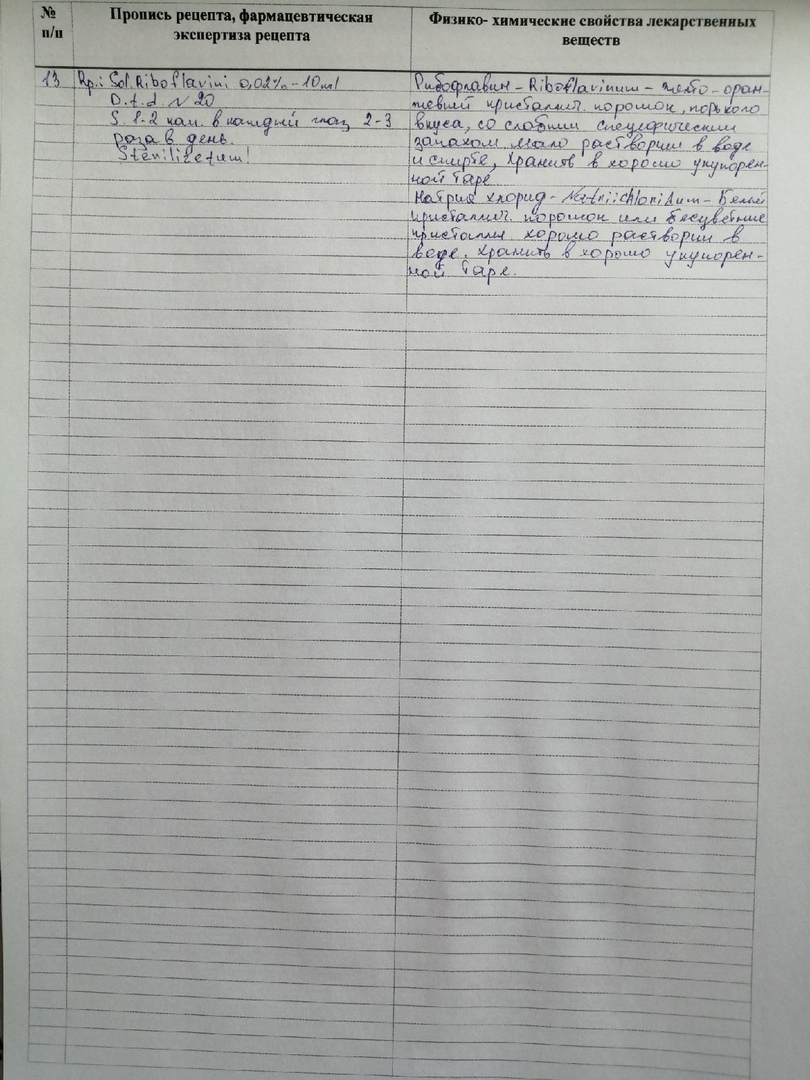 №
п/п
Пропись рецепта, фармацевтическая
экспертиза рецепта
Физико- химические свойства лекарственных
веществ
13
Rp.: Sol. Riboflavini 0,02% - 10 ml
D.t.d №20
S. 1-2 кап. в каждый глаз 2-3
раза в день.
Sterilisetum!
Рибофлавин - Riboflavinum - желто-оран-
жевый кристаллич. порошок, горького
вкуса, со слабым специфическим
запахом. Мало растворим в воде
и спирте, Хранить в хорошо укупорен-
ной таре
Натрия хлорид - Natrii chloridum - Белый
кристаллич. порошок или бесцветные
кристаллы хорошо растворим в
воде. Хранить в хорошо укупорен-
ной таре.